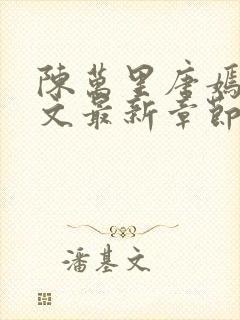 陳萬里唐嫣
文最新章節
潘基文